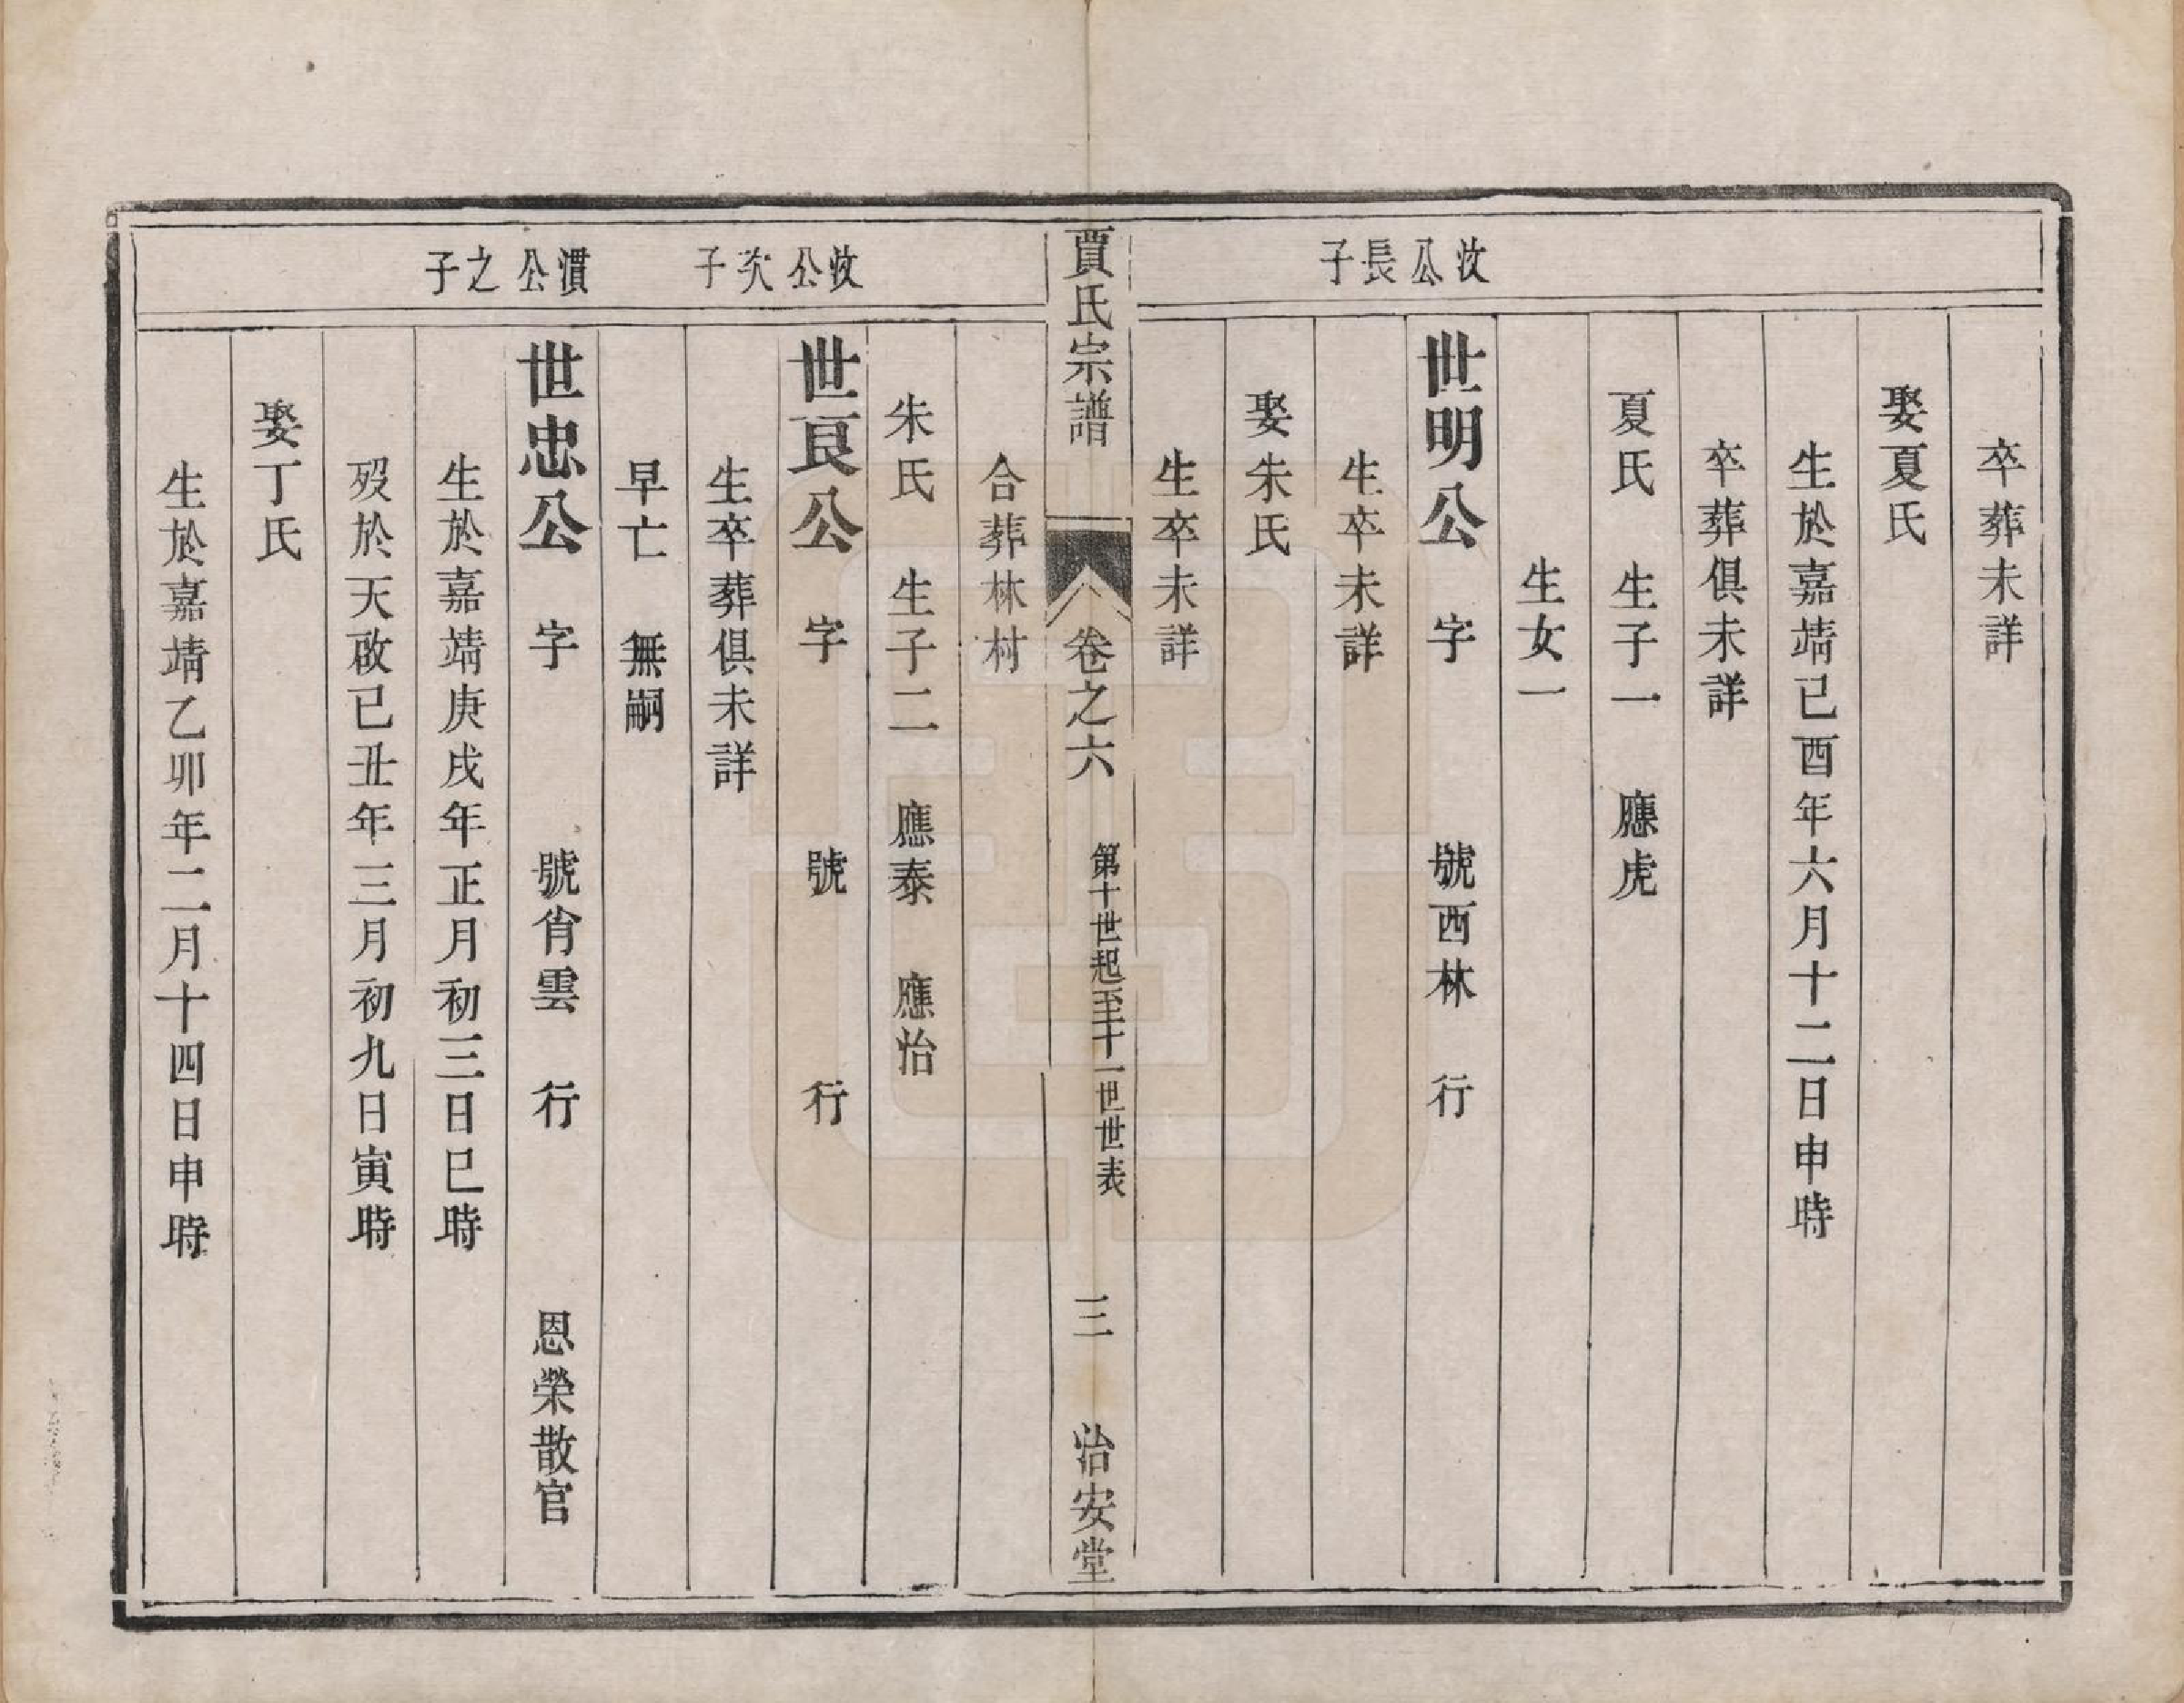 卒葬未詳
娶夏氏
生於嘉靖己酉年六月十二日申時
卒葬俱未詳
夏氏　生子一　應虎
生女一
汝公長子
世明公　字　號西林　行
生卒未詳
娶朱氏
生卒未詳
賈氏宗譜　卷之六　第十世起至十一世世表　三　治安堂
合葬林村
朱氏　生子二　應泰　應治
汝公次子
世良公　字　號　行
生卒葬俱未詳
早亡　無嗣
濆公之子
世忠公　字　號肖雲　行　恩榮散官
生於嘉靖庚戌年正月初三日巳時
歿於天啟己丑年三月初九日寅時
娶丁氏
生於嘉靖乙卯年二月十四日申時